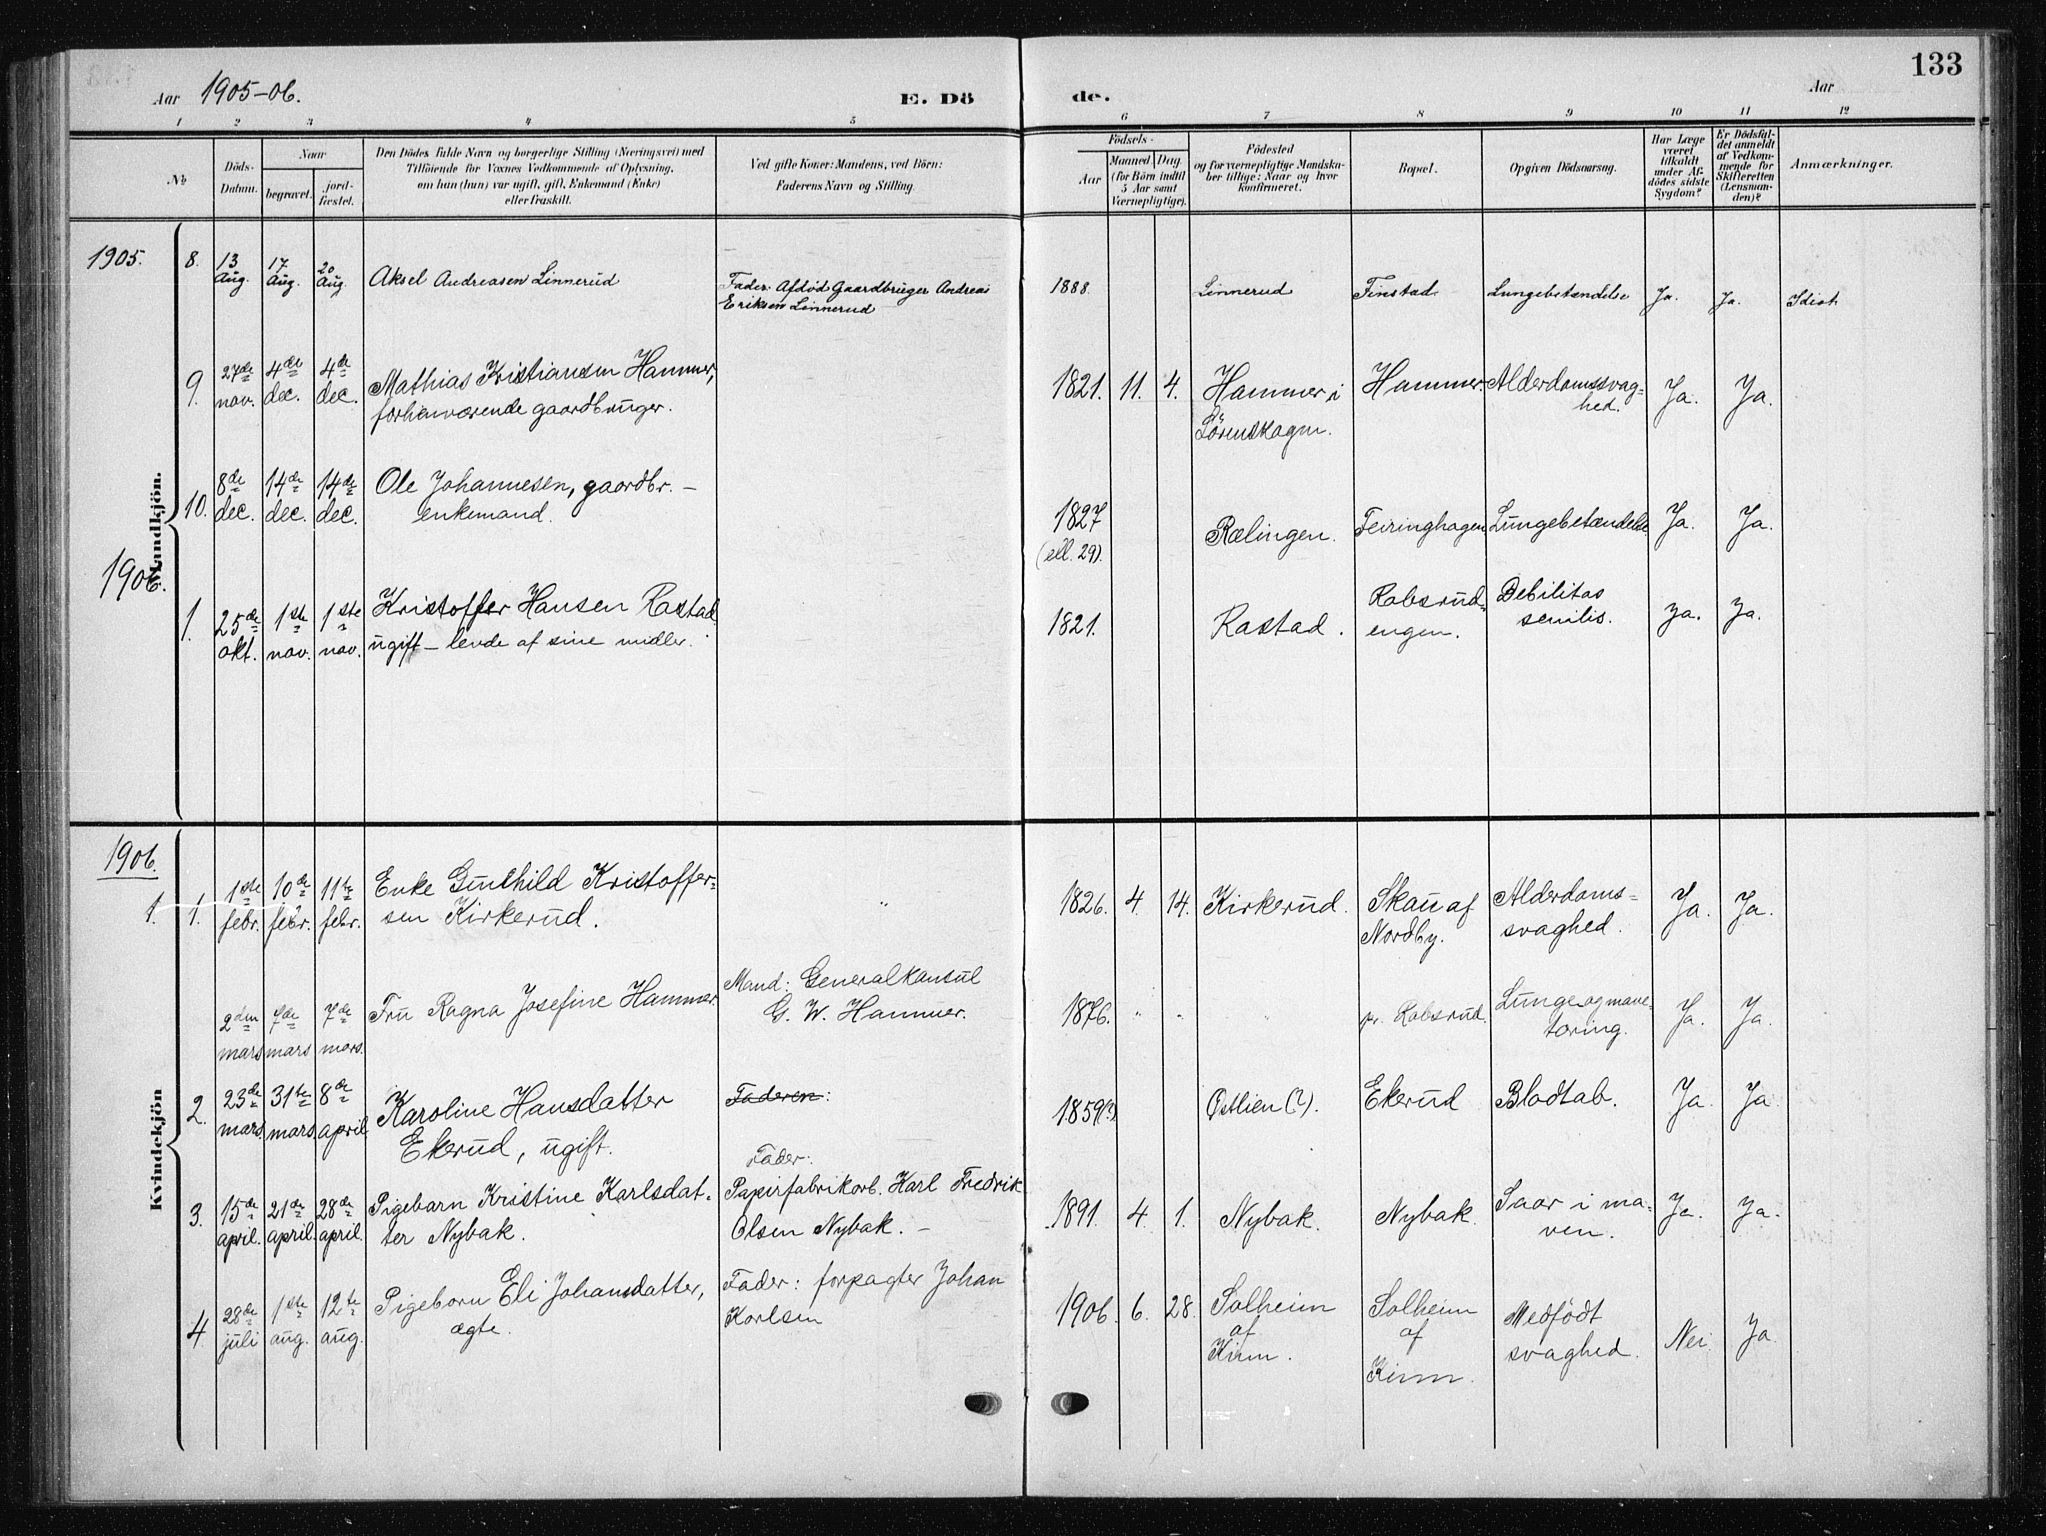 133
Aar 1905-06.
E. Dö
de.
Aar
1 2 3 4 5 6 7 8 9 10 11 12
№
Döds-Datum.
Naar
begravet.
jord-fæstet.
Den Dödes fulde Navn og borgerlige Stilling (Næringsvei) med
Tilföiende for Voxnes Vedkommende af Oplysning,
om han (hun) var ugift, gift, Enkemand (Enke)
eller fraskilt.
Ved gifte Koner: Mandens, ved Börn:
Faderens Navn og Stilling.
Födsels-
Aar
Maaned. Dag.
(for Börn indtil
5 Aar samt
Værnepligtige).
Födested
og for værnepligtige Mandska-
ber tillige: Naar og hvor
konfirmeret.
Bopæl.
Opgiven Dödsaarsag.
Har Læge
været
tilkaldt
under Af-
dödes sidste
Sygdom?
Er Dödsfal-
det anmeldt
af Vedkom-
mende for
Skifteretten
(Lensman-
den)?
Anmærkninger.
Mandkjön.
1905.
8. 13 Aug. 17 Aug. 20 Aug. Aksel Andreasen Linnerud Fader: Afdød Gaardbruger Andreas 1888. Linnerud Finstad Lungebetændelse Ja. Ja. Idiot
Eriksen Linnerud
9. 27de nov. 4de dec. 4de dec. Mathias Kristiansen Hammer, 1821. 11. 4. Hammer i Hammer. Alderdomssvag-
forhenværende gaardbruger. Lörenskogen. hed. Ja. Ja.
10. 8de dec. 14de dec. 14de dec. Ole Johannesen, gaardbr. – 1827 Rælingen. Feiringhagen Lungebetændelse Ja. Ja.
enkemand. (ell. 29).
1906.
1. 25de okt. 1ste nov. 1ste nov. Kristoffer Hansen Rastad 1821. Rastad. Robsrud- Debilitas
ugift – levde af sine midler. engen. senilis. Ja. Ja.
Kvindekjön
1906.
1. 1. 1ste febr. 10de febr. 11te febr. Enke Gunhild Kristoffer- " 1826. 4. 14. Kirkerud. Skau af Alderdoms-
sen Kirkerud. Nordby. svaghed. Ja. Ja.
2den mars 7de mars 7de mars. Fru Ragna Josefine Hammer Mand: Generalkonsul 1876. " " " pr. Robsrud. Lunge og mave-
G. W. Hammer. tæring. Ja. Ja.
2. 23de mars. 31te mars. 8de april Karoline Hansdatter Faderen: 1859(?) Østlien (?). Ekerud Blodtab. Ja. Ja
Ekerud, ugift.
Fader:
3. 15de april. 21de april. 28de april. Pigebarn Kristine Karlsdat- Papirfabrikarb. Karl Fredrik 1891. 4. 1. Nybak. Nybak. Saar i ma-
ter Nybak. Olsen Nybak. – ven. Ja. Ja.
4. 28de juli 1ste aug. 12te aug. Pigebarn Eli Johansdatter, Fader: forpagter Johan 1906. 6. 28. Solheim Solheim Medfödt
ægte. Karlsen af Kinn. af Kinn. svaghed. Nei. Ja